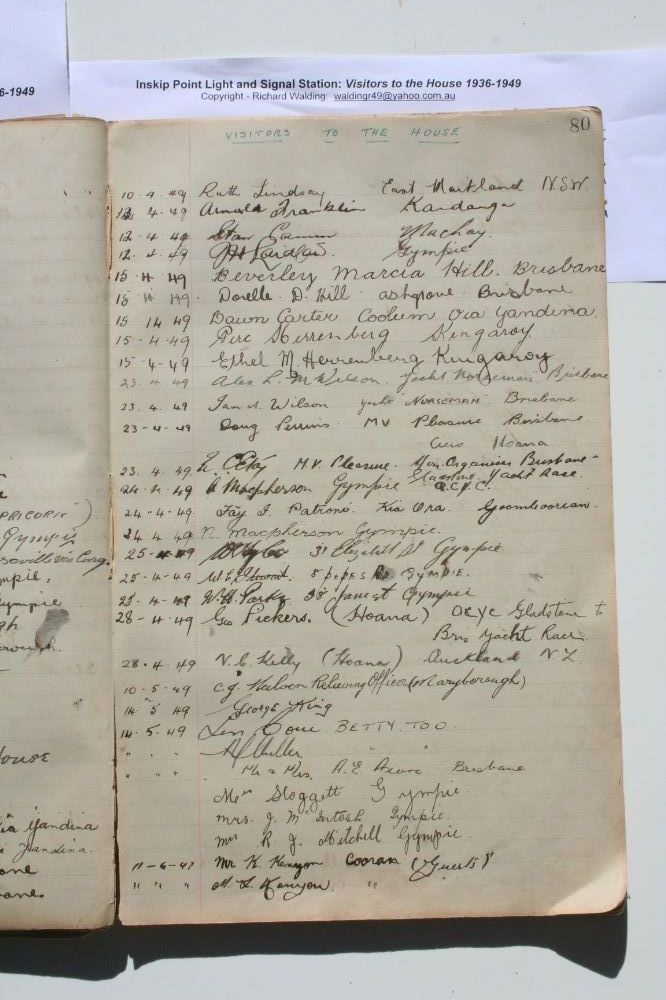 6-1949
Inskip Point Light and Signal Station: Visitors to the House 1936-1949
Copyright - Richard Walding: waldingr49@yahoo.com.au
VISITORS TO THE HOUSE
80
10.4.49 Ruth Lindsay East Maitland NSW.
12 4.49 Arnold Franklin Kandanga
12.4.49 Stan Mackay.
12.4.49 Gympie
15 4 49 Beverley Marcia Hill. Brisbane
15 4 49. Dorelle D. Hill ashgrove Brisbane
15 14 49 Dawn Carter Coolum Via Yandina.
15-4-49 Perc Herrenberg Kingaroy.
15-4-49 Ethel M. Herrenberg Kingaroy
23-4-49 Alex L. M. Wilson. Yacht Norseman Brisbane
23.4.49 Ian A. Wilson yacht "NORSEMAN" Brisbane
23-4-49 Doug Perrins MV Pleasure Brisbane
Hoana
23.4.49 M.V. Pleasure. Hon. Organiser Brisbane-
Gladstone Yacht Race.
24-4-49 A Macpherson Gympie Q.C.Y.C.
24-4-49 Fay I. Patrons Kia Ora. Goomboorian.
24 4 49 N. Macpherson Gympie.
25-4-49 31 Elizabeth St Gympie
25-4-49 GYMPIE.
25-4-49 W. H. Parks 38 Gympie
28-4-49 Geo Pickers. (Hoana) QCYC Gladstone to
Bris Yacht Race.
28.4.49 N. C. Kelly (Hoana) Auckland N.Z.
10-5-49 C. J. Neilson Relieving Officer (Maryborough)
14 5 49 George King
14.5.49 Len BETTY. TOO.
" " " " "
" " " Mr & Mrs. A. E. Brisbane
Sloggett Gympie.
mrs. J. McIntosh Gympie.
mrs R J. Mitchell Gympie.
11-6-47 Mr K. Kenyon Cooran (Guests)
" " " M. L. Kenyon. "
PRICORN")
Gympie
Gympie
via Yandina
Yandina.